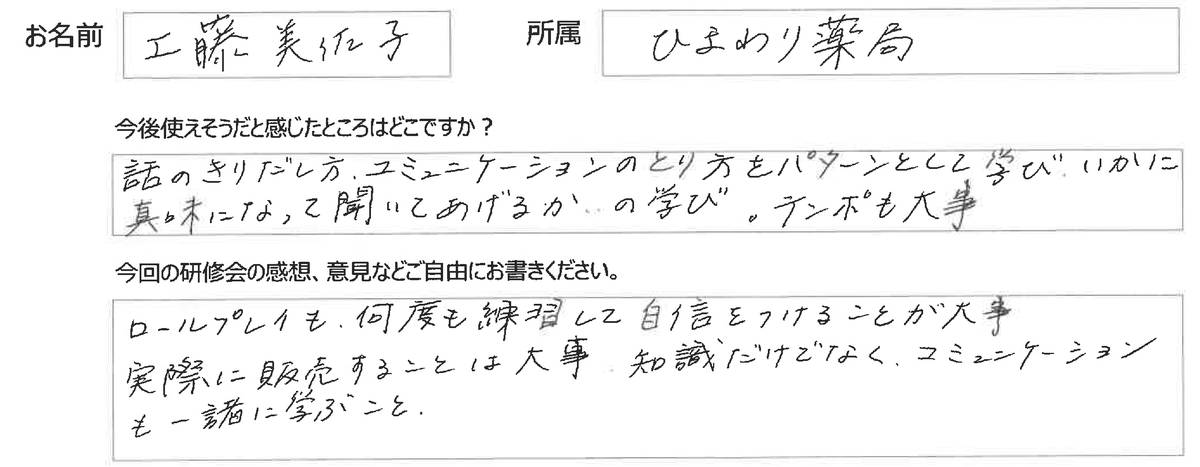 お名前 工藤美佐子 所属 ひまわり薬局
今後使えそうだと感じたところはどこですか？
話のきりだし方、コミュニケーションのとり方をパターンとして学び、いかに
真味になって聞いてあげるか、の学び。テンポも大事
今回の研修会の感想、意見などご自由にお書きください。
ロールプレイも、何度も練習して自信をつけることが大事
実際に販売することは大事、知識だけでなく、コミュニケーション
も一諸に学ぶこと。